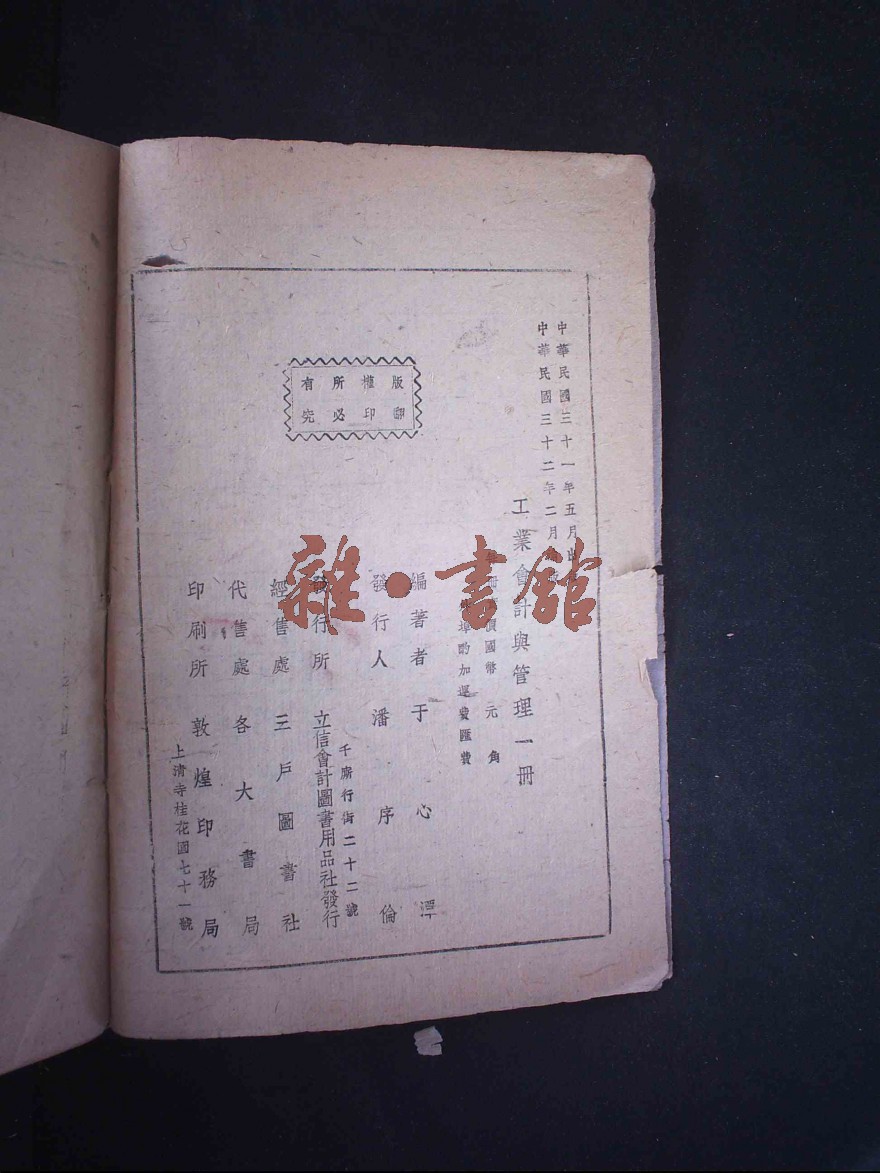 中華民國三十一年五月出
中華民國三十二年二月
工業會計與管理一冊
價國幣 元 角
埠酌加運費匯費
版權所有
翻印必究
編著者 于心潭
發行人 潘序倫
發行所 立信會計圖書用品社發行
千廝行街二十二號
經售處 三戶圖書社
代售處 各大書局
印刷所 敦煌印務局
上清寺桂花園七十一號
雜·書館